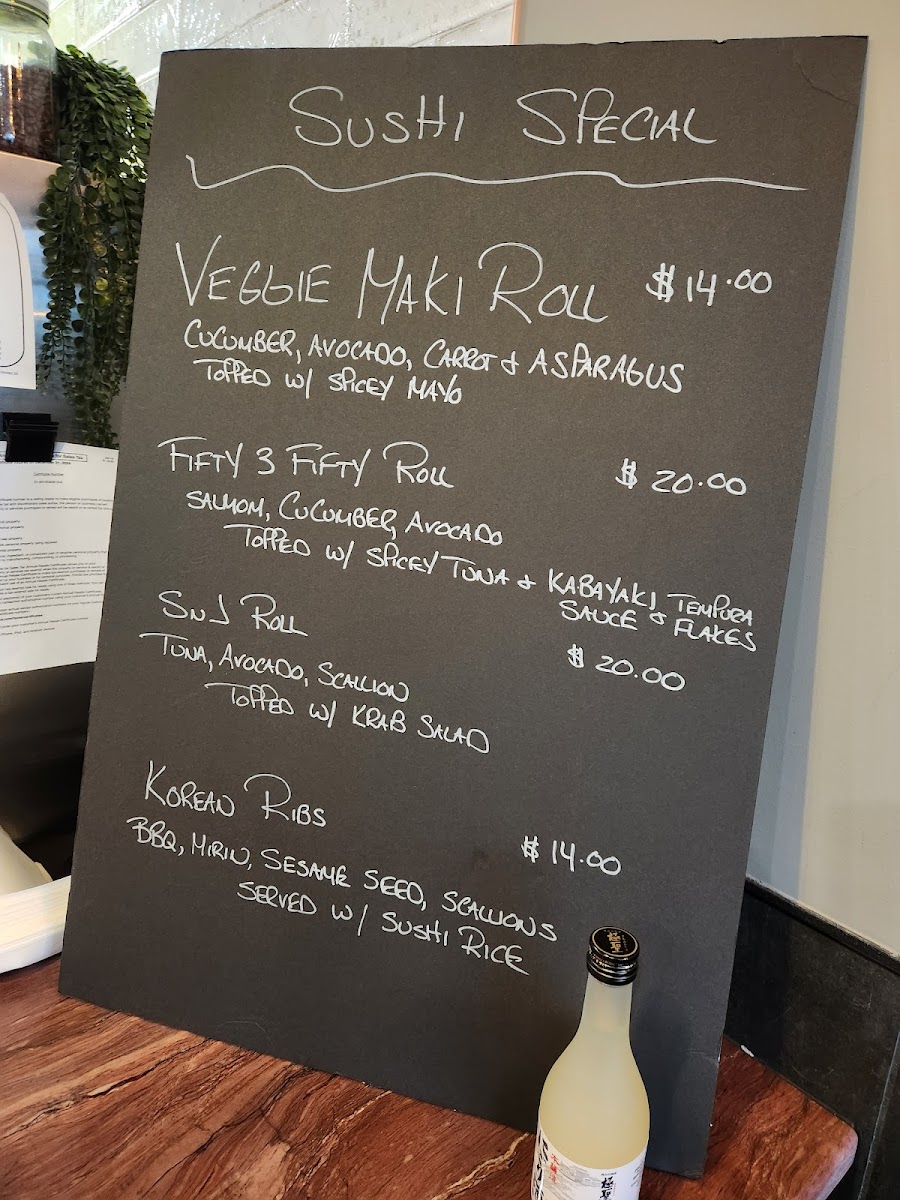 SUSHI SPECIAL
VEGGIE MAKI ROLL $14.00
CUCUMBER, AVOCADO, CARROT & ASPARAGUS
TOPPED W/ SPICEY MAYO
FIFTY 3 FIFTY ROLL $20.00
SALMON, CUCUMBER, AVOCADO
TOPPED W/ SPICEY TUNA & KABAYAKI, TEMPURA
SAUCE & FLAKES
SNJ ROLL $20.00
TUNA, AVOCADO, SCALLION
TOPPED W/ KRAB SALAD
KOREAN RIBS $14.00
BBQ, MIRIN, SESAME SEED, SCALLIONS
SERVED W/ SUSHI RICE